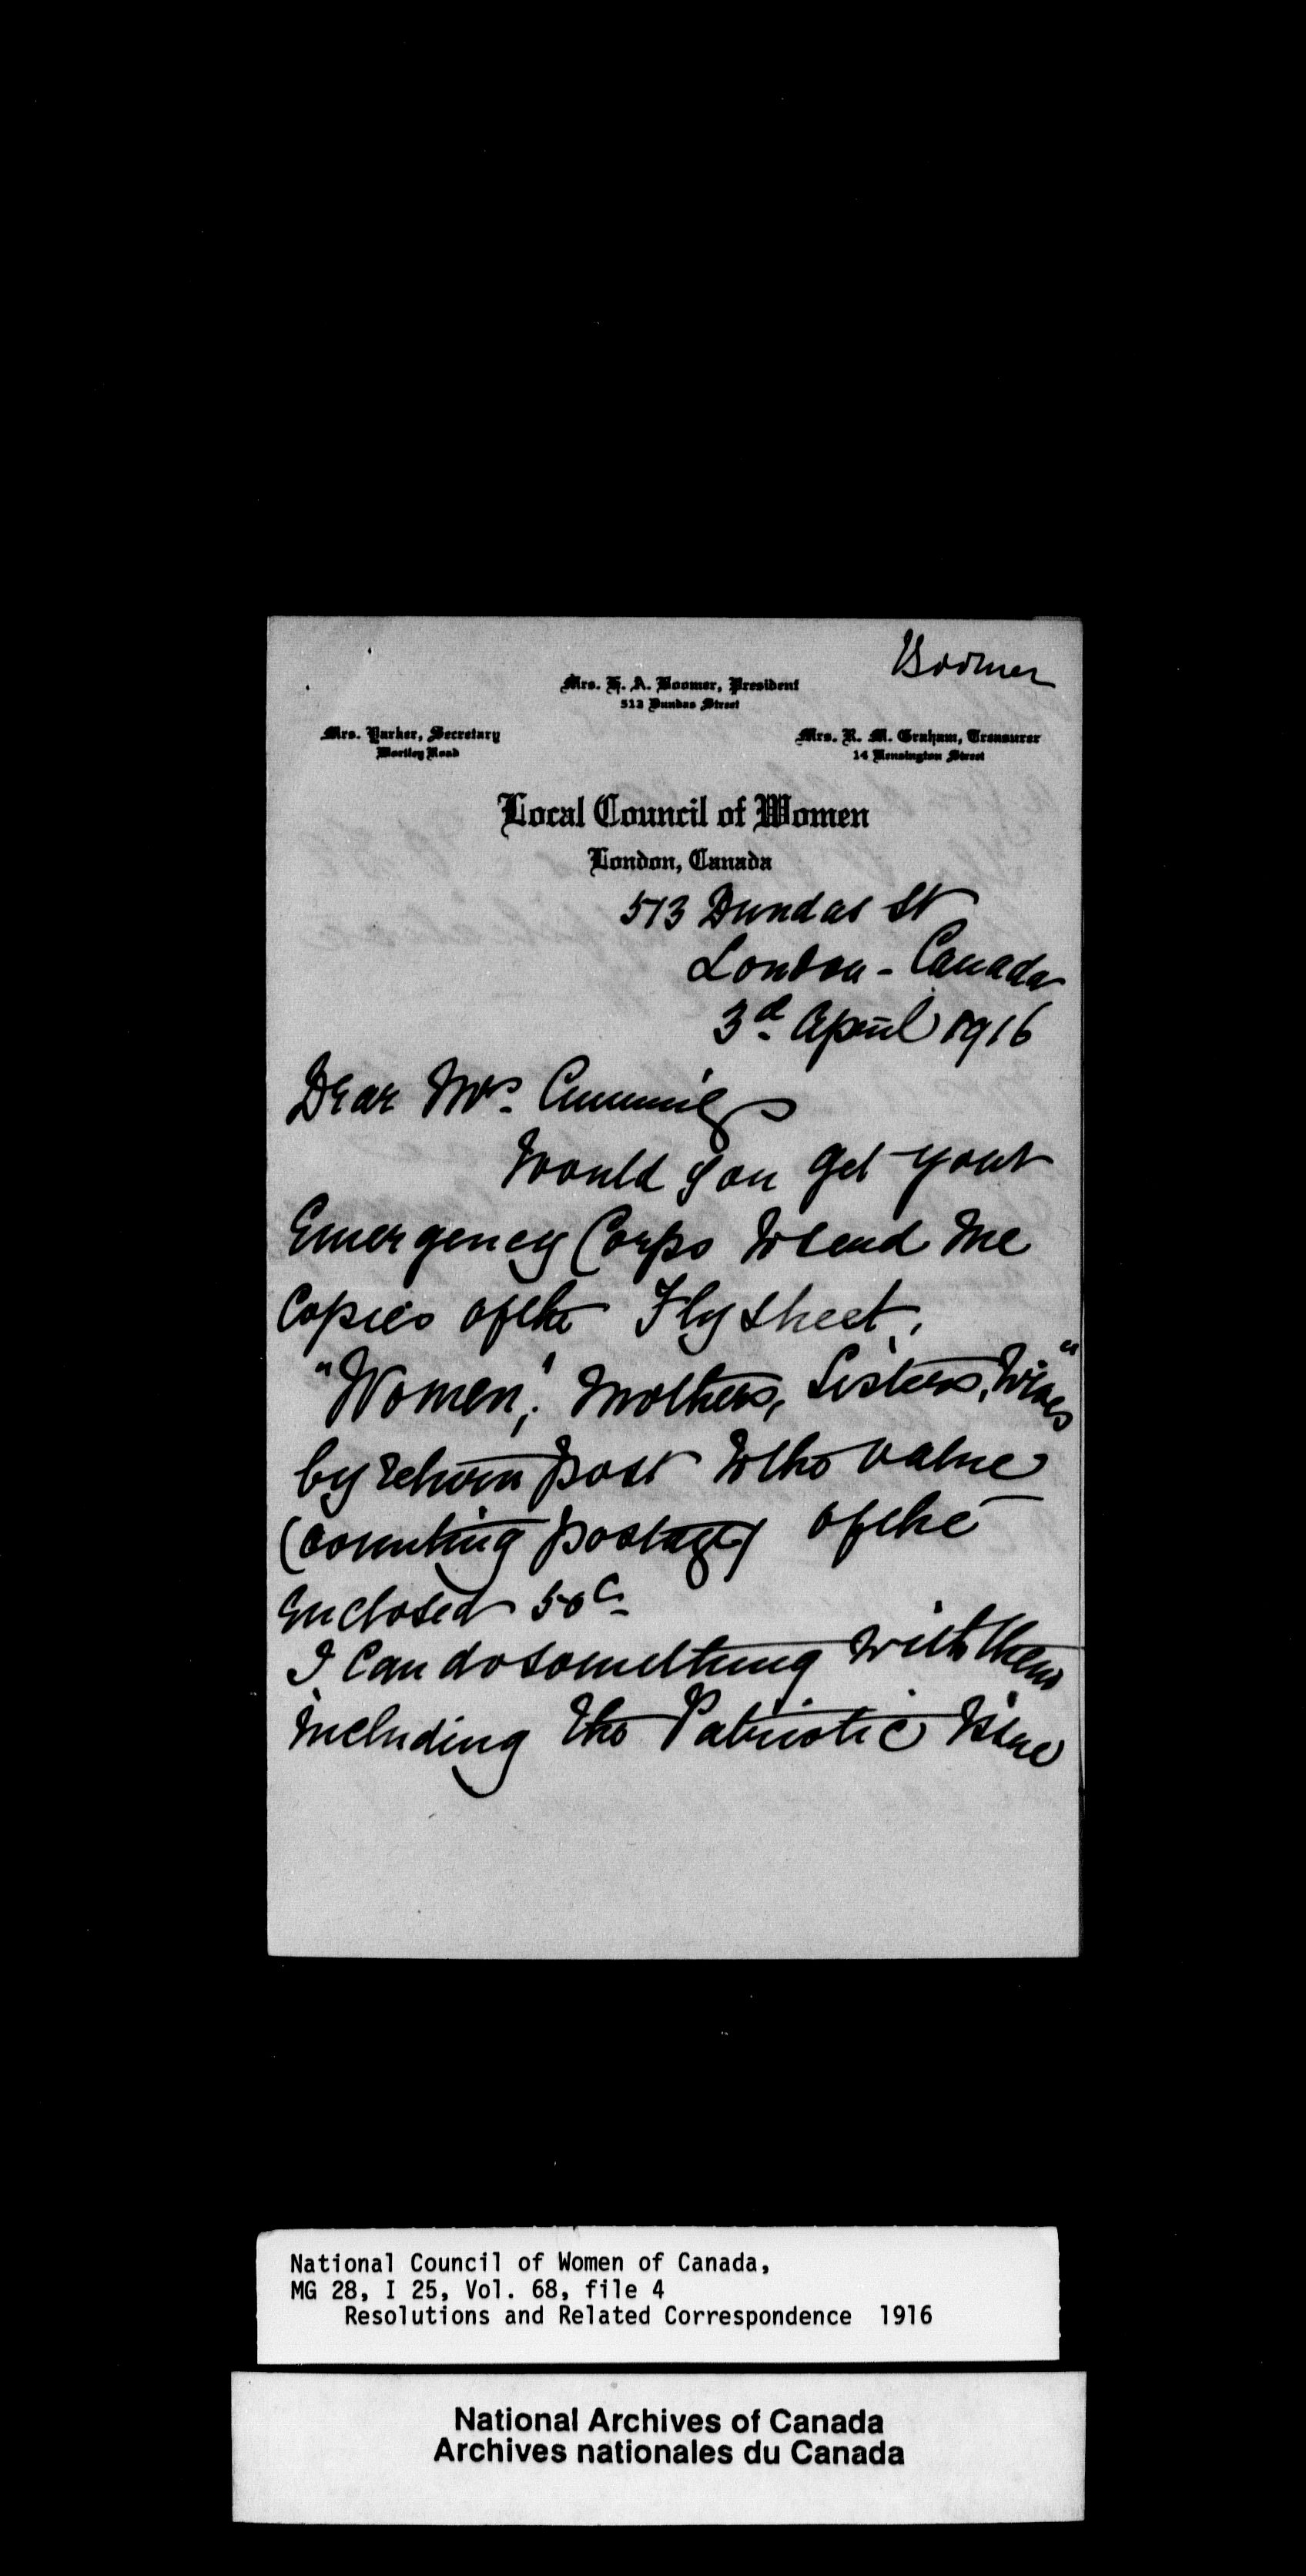 Boomer
Mrs. H. A. Boomer, President
513 Dundas Street
Mrs. Yarker, Secretary
Wortley Road
Mrs. R. M. Graham, Treasurer
14 Kensington Street
Local Council of Women
London, Canada
513 Dundas St
London - Canada
3d April 1916
Dear Mrs. Cummings
Would you get your
Emergency Corps to send me
Copies of the Fly Sheet,
"Women", Mothers, Sisters, Wives"
by return post to the value
(counting postage) of the
enclosed 50c
I can do something with them
including the Patriotic
National Council of Women of Canada,
MG 28, I 25, Vol. 68, file 4
Resolutions and Related Correspondence 1916
National Archives of Canada
Archives nationales du Canada